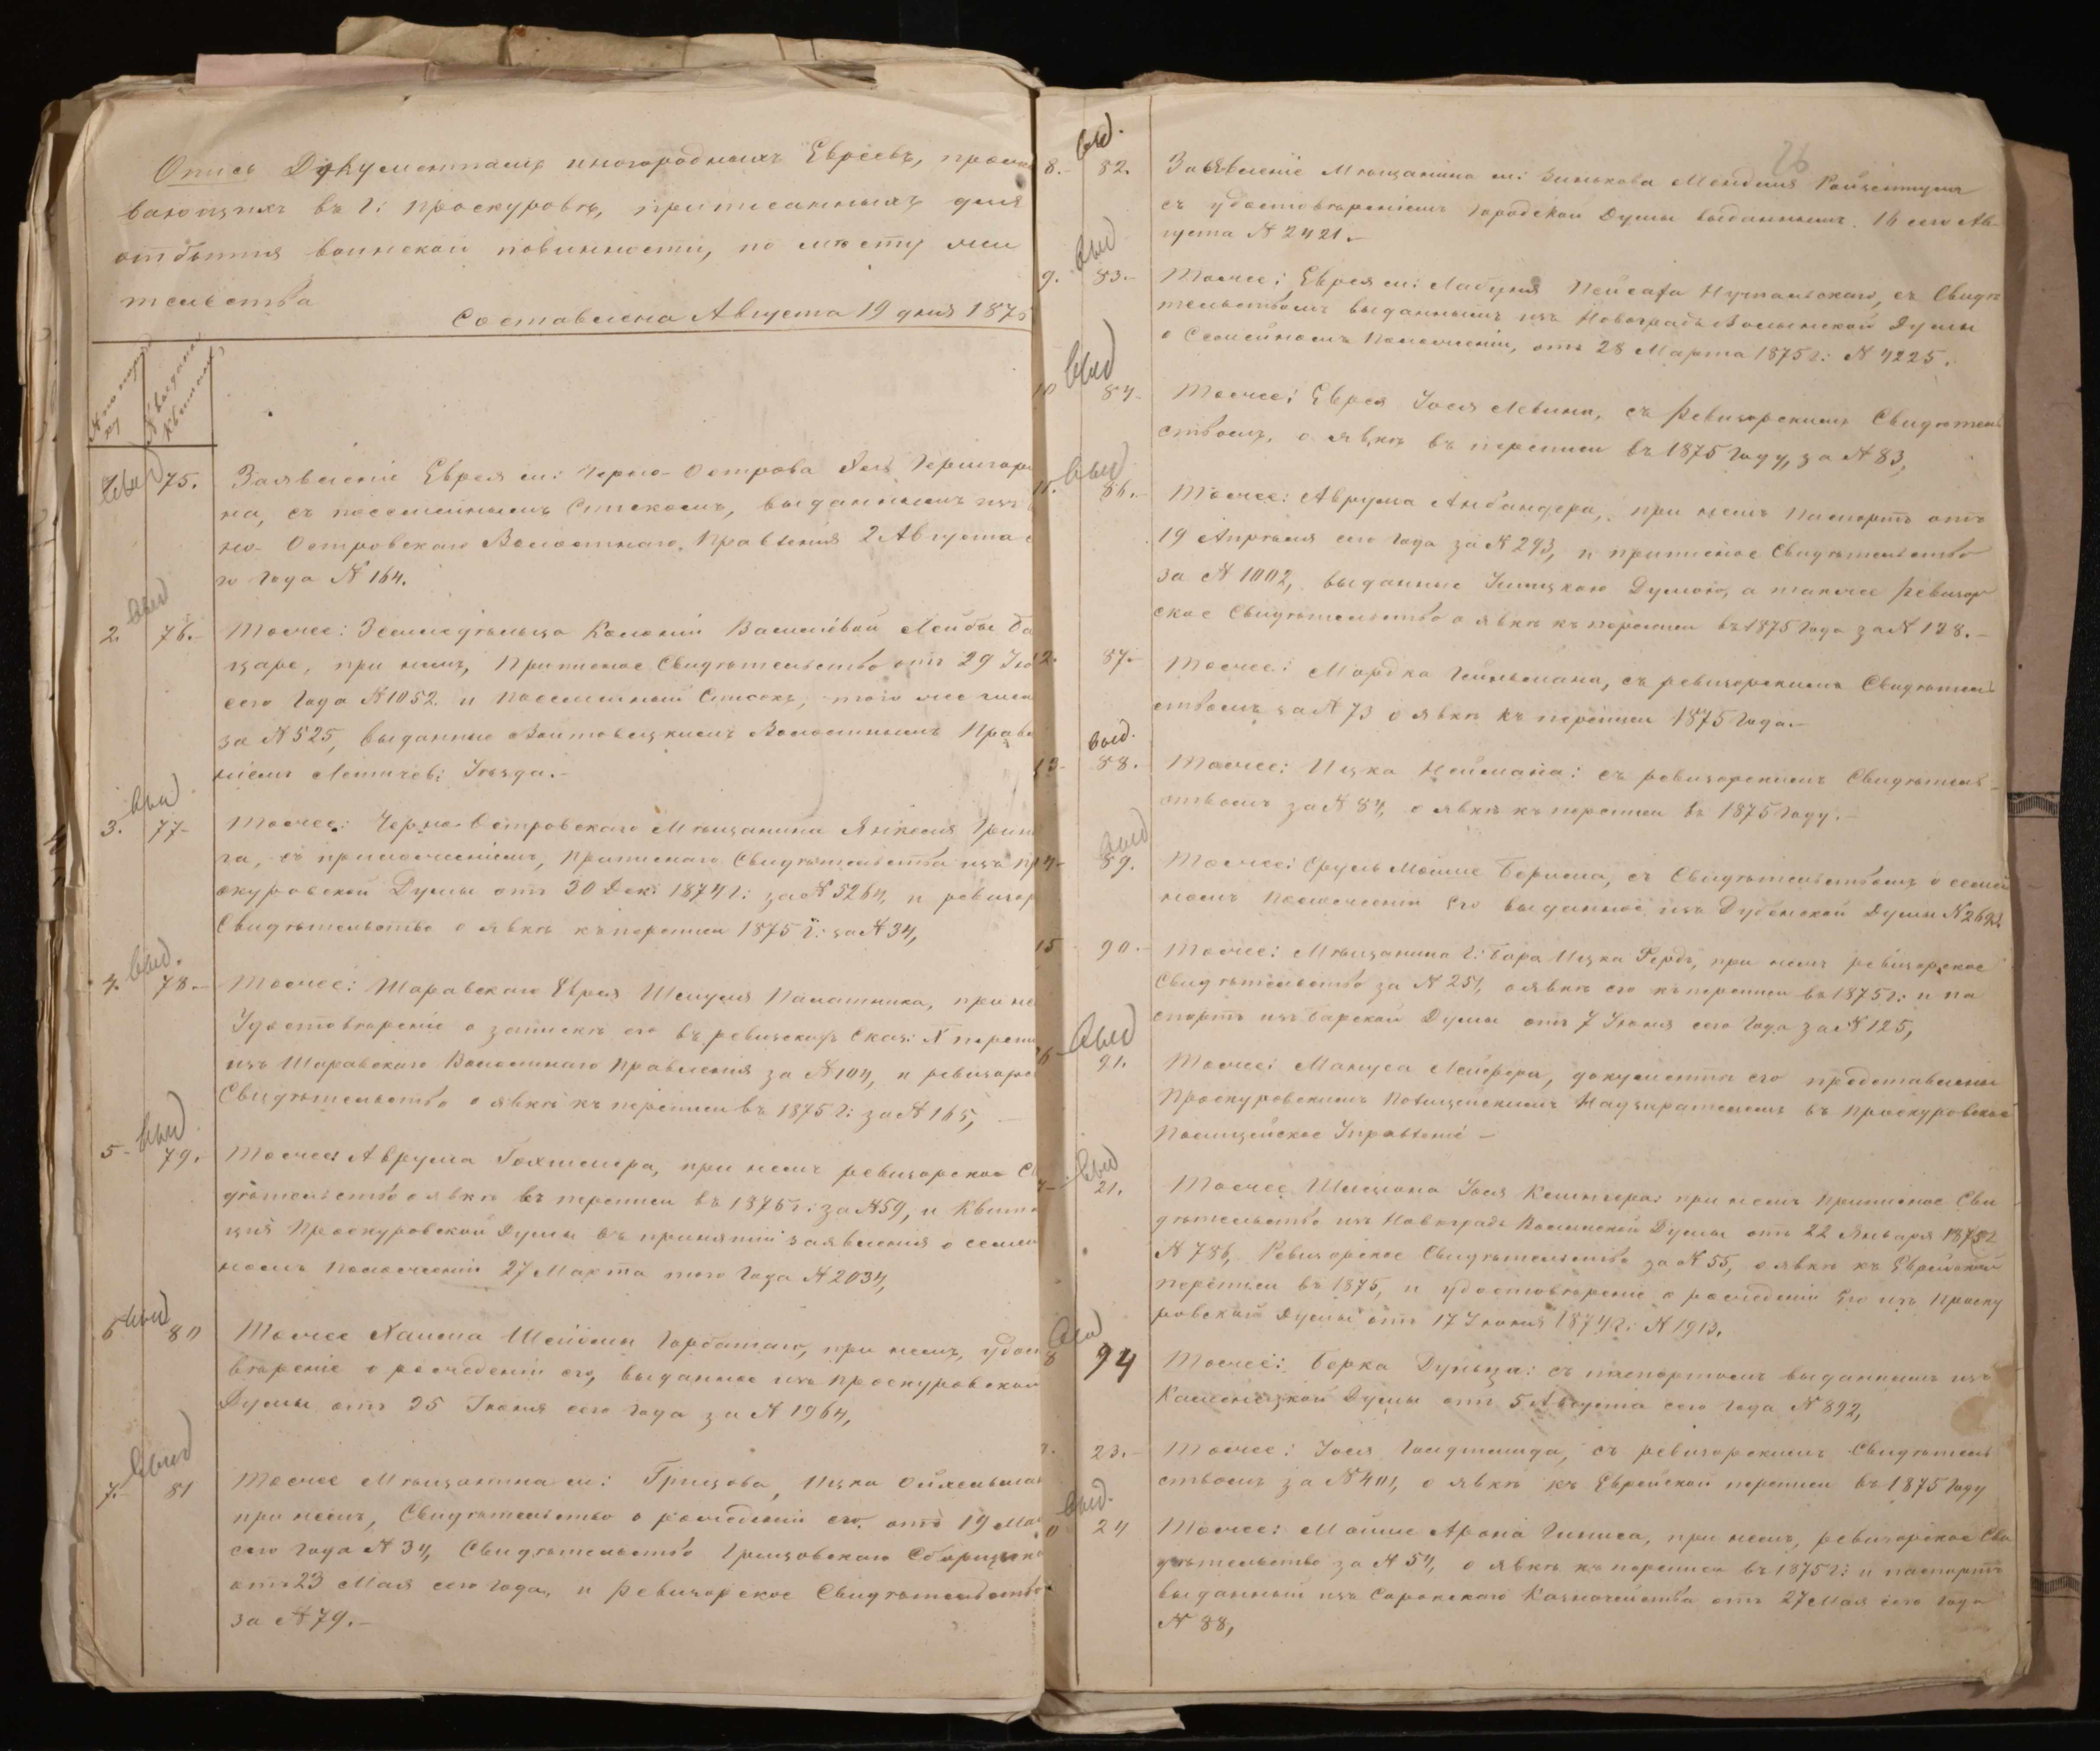 Опись Документамъ иногородныхъ Евреевъ, прожи
вающихъ въ г: Проскуровѣ, приписанныхъ для
отбытія воинской повинности, по мѣсту жи
тельства
Составлена Августа 19 дня 1875
№ по поряд
ку
№ выданной
Квитанц:
выд 75. Заявленіе Еврея м: Черно-Острова
на, съ посемейнымъ Спискомъ, выданнымъ изъ
но-Островскаго Волостнаго Правленія 2 Августа с
го года № 164.
выд
2. 76. Тоже: Земледѣльца Колоніи Лейбы
при немъ, Приписное Свидѣтельство отъ 29 Ію
сего года № 1052. и Посемейный Списокъ, того же числа
за № 525, выданные Войтовецкимъ Волостнымъ Правле
ніемъ Летичев: Уѣзда.-
выд
3. 77- Тоже: Черно-Островскаго Мѣщанина Янкеля Грин
га, съ приложеніемъ, Приписнаго Свидѣтельства изъ Пр
скуровской Думы отъ 30 Дек: 1874 г: за № 5264, и ревизор
Свидѣтельство о явкѣ къ переписи 1875 г: за № 34,
выд.
4. 78.- Тоже: Шаравскаго Еврея Шмуля при не
Удостовѣреніе о запискѣ его въ ревизскую сказ: X перепи
изъ Шаравскаго Волостнаго Правленія за № 104, и ревизорс
Свидѣтельство о явкѣ къ переписи въ 1875 г: за № 165,
выд
5- 79.- Тоже: Аврума при немъ ревизорское С
дѣтельство о явкѣ къ переписи въ 1875 г: за № 59, и Квитан
ція Проскуровской Думы въ принятіи заявленія о семей
номъ положеніи 27 Марта того года № 2034,
выд
6 80 Тоже Хаима Горбатаго, при немъ, удост
вѣреніе о рожденіи его, выданное изъ Проскуровской
Думы отъ 25 Іюня сего года за № 1964,
выд
7.- 81 Тоже Мѣщанина м: Грицова, Ицка
при немъ, Свидѣтельство о рожденіи его. отъ 19 Мая
сего года № 34, Свидѣтельство Грицовскаго
отъ 23 Мая сего года, и Ревизорское Свидѣтельство
за № 79.-
26
выд.
8.- 82. Заявленіе Мѣщанина м: Зинькова Менделя
съ удостовѣреніемъ Городской Думы выданнымъ. 16 сего Ав-
густа № 2421.-
выд
9. 83.- Тоже: Еврея м: Лабуня съ Свидѣ
тельствомъ выданнымъ изъ Новоградъ Волынской Думы
о Семейномъ Положеніи, отъ 28 Марта 1875 г: № 4225.
выд
10 84- Тоже: Еврея Іося Левина, съ Ревизорскимъ Свидѣтель
ствомъ, о явкѣ въ переписи въ 1875 году, за № 83,
выд
11. 86.- Тоже: Аврума при немъ Паспортъ отъ
19 Апрѣля сего года за № 293, и приписное Свидѣтельство
за № 1002, выданные Думою, а также Ревизор
ское Свидѣтельство о явкѣ къ переписи въ 1875 года за № 128.-
12. 87.- Тоже: Мордка съ ревизорскимъ Свидѣтель
ствомъ за № 73 о явкѣ къ переписи 1875 года.-
выд.
13- 88. Тоже: Ицка Неймана: съ ревизорскимъ Свидѣтель-
ствомъ за № 84, о явкѣ къ переписи въ 1875 году.-
выд
14- 89. Тоже: Срулъ Мошие съ Свидѣтельствомъ о семей
номъ Положеніи его выданное изъ Дубенской Думы № 2692.
15 90.- Тоже: Мѣщанина г: Бара Ицка при немъ ревизорское
Свидѣтельство за № 251, о явкѣ его къ переписи въ 1875 г: и па
спортъ изъ Барской Думы отъ 7 Іюня сего года за № 125,
выд
16- 91. Тоже: Мануса документы его представлены
Проскуровскимъ Полицейскимъ Надзирателемъ въ Проскуровское
Полицейское Управленіе -
выд
7- 21. Тоже Іося при немъ Приписное Сви
дѣтельство изъ Новоградъ Волынской Думы отъ 22 Января 1875 г
№ 786, Ревизорское Свидѣтельство за № 55, о явкѣ къ Еврейской
переписи въ 1875, и удостовѣреніе о рожденіи его изъ Проску
ровской Думы отъ 17 Іюня 1874 г: № 1913.
выд
8 94 Тоже: Берка съ паспортомъ выданнымъ изъ
Каменецкой Думы отъ 5 Августа сего года № 892,
23.- Тоже: Іося съ ревизорскимъ Свидѣтель
ствомъ за № 401, о явкѣ къ Еврейской переписи въ 1875 году
выд.
0 24 Тоже: Мошие Арона при немъ, ревизорское Сви
дѣтельство за № 54, о явкѣ къ переписи въ 1875 г: и паспортъ
выданный изъ Сорокскаго Казначейства отъ 27 Мая сего года
№ 88,